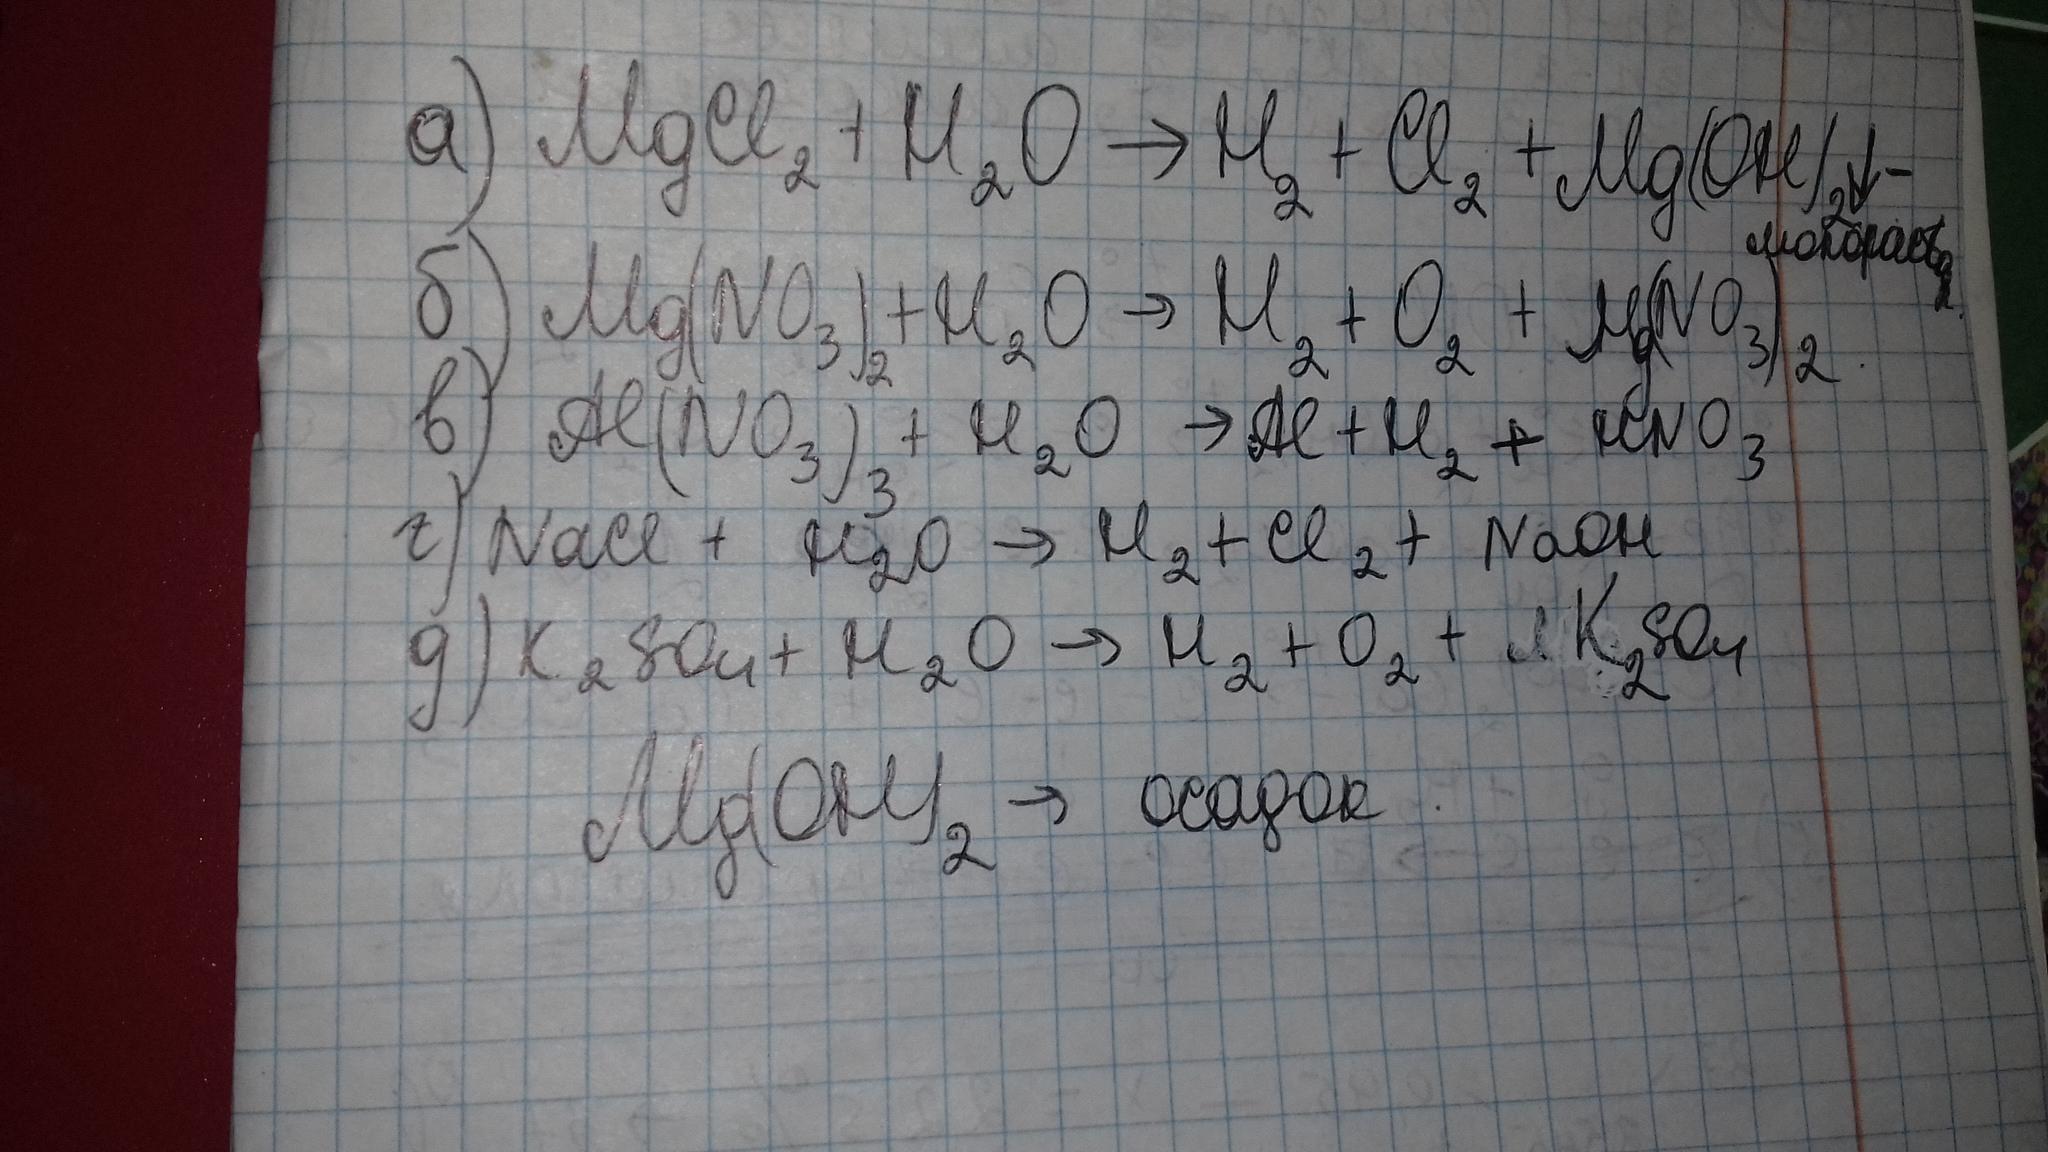 а) MgCl₂ + H₂O → H₂ + Cl₂ + Mg(OH)₂↓ -
малораств.
б) Mg(NO₃)₂ + H₂O → H₂ + O₂ + Mg(NO₃)₂.
в) Al(NO₃)₃ + H₂O → Al + H₂ + HNO₃
г) NaCl + H₂O → H₂ + Cl₂ + NaOH
д) K₂SO₄ + H₂O → H₂ + O₂ + K₂SO₄
Mg(OH)₂ → осадок.